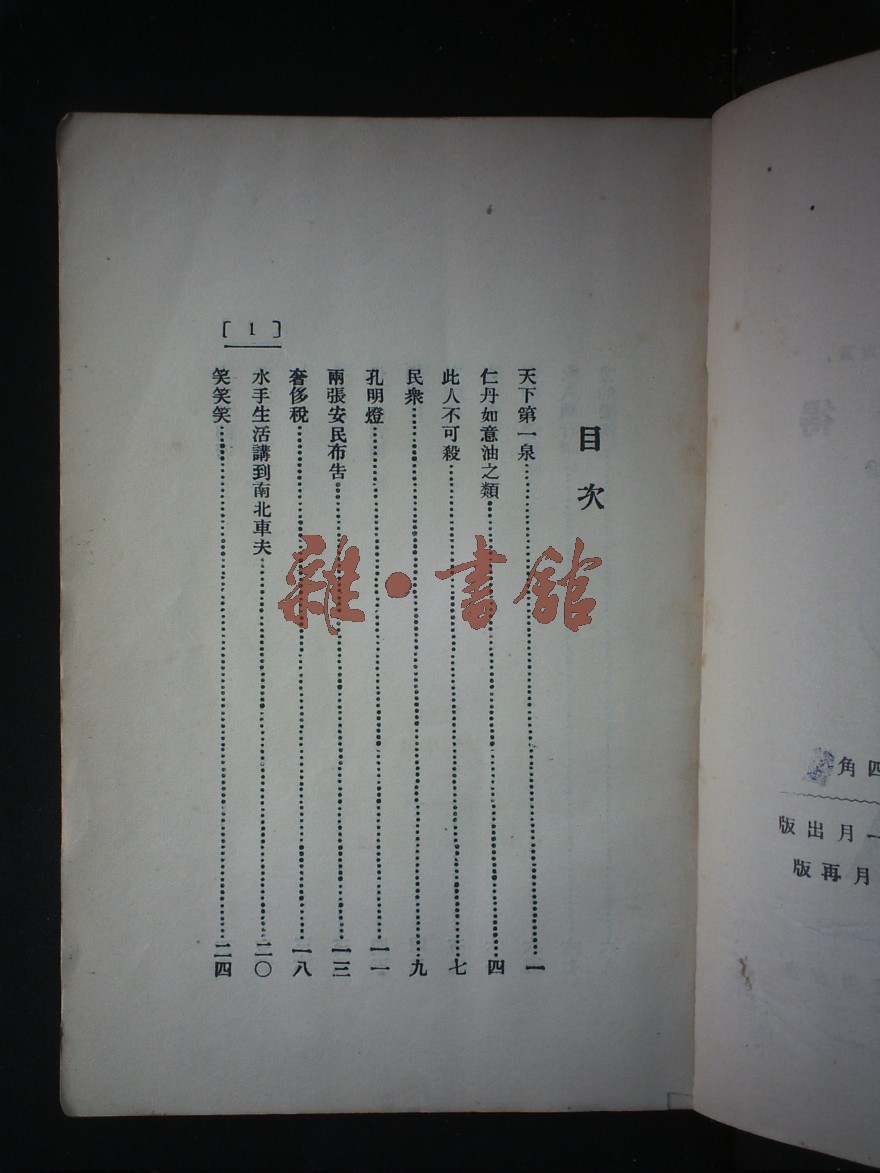 目次
天下第一泉……一
仁丹如意油之類……四
此人不可殺……七
民衆……九
孔明燈……一一
兩張安民布告……一三
奢侈稅……一八
水手生活講到南北車夫……二〇
笑笑笑……二四
[ 1 ]
雜·書館
四角
一月出版
月再版